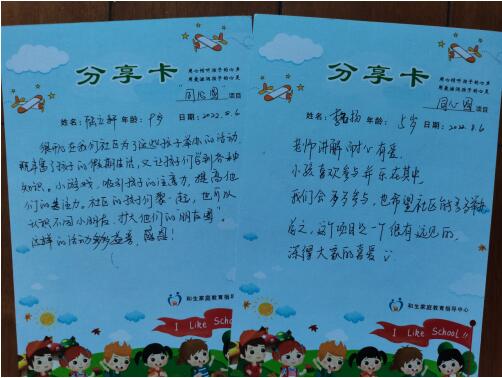 分享卡
用心倾听孩子的心声
用爱滋润孩子的心灵
"同心圆" 项目
姓名: 年龄: 日期: 2022.8.6
很开心在我们社区为了这些孩子举办的活动
既丰富了孩子的假期生活,又让孩子们学到各种
知识。小游戏,吸引孩子的注意力,提高他
们的专注力。社区的孩子们聚一起,也可以
认识不同小朋友,扩大他们的朋友圈。
这样的活动 益善,感恩!
和生家庭教育指导中心
I Like School!!
分享卡
用心倾听孩子的心声
用爱滋润孩子的心灵
同心圆 项目
姓名: 年龄: 5岁 日期: 2022.8.6
老师讲解耐心有爱,
小孩喜欢参与并乐在其中,
我们会多多参与,也希望社区能多多举办
总之,这个项目是一个很有远见的,
深得大家的喜爱
和生家庭教育指导中心
I Like School!!